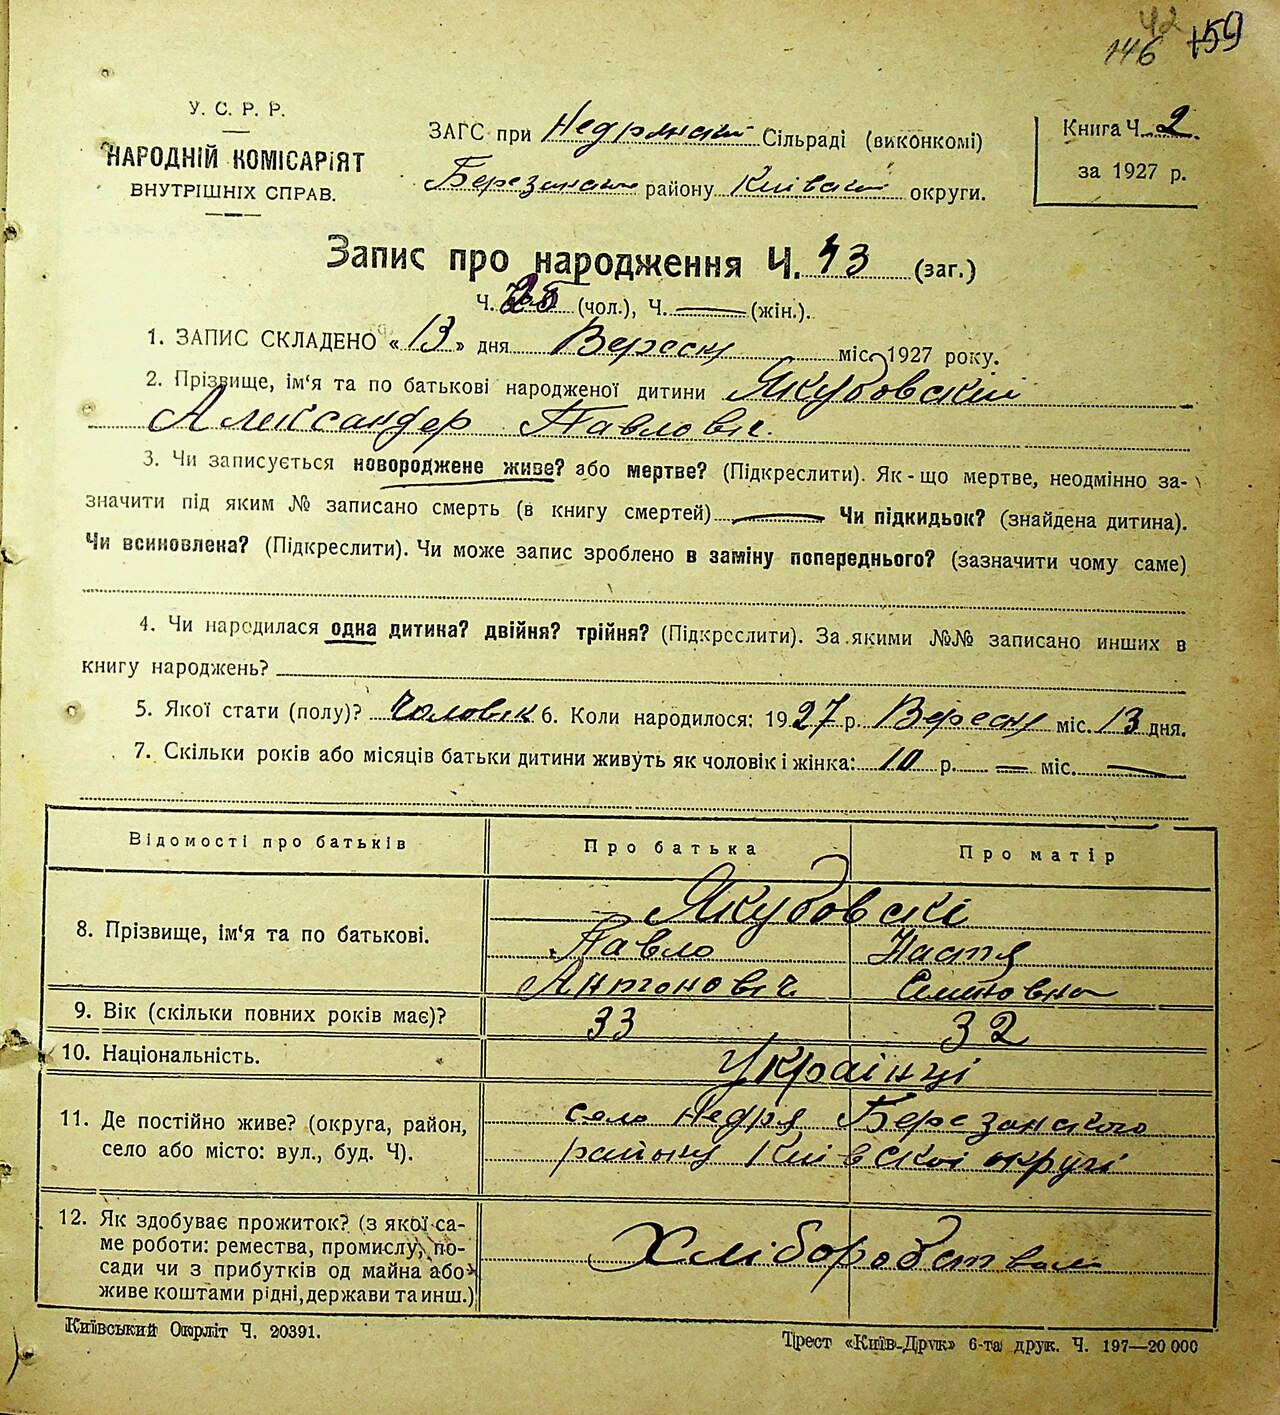 42
146 159
У. С. Р. Р.
НАРОДНІЙ КОМІСАРІЯТ
ВНУТРІШНІХ СПРАВ.
ЗАГС при Недрянскій Сільраді (виконкомі)
Березанского району Київскої округи.
Книга Ч. 2.
за 1927 р.
Запис про народження Ч. 43 (заг.)
Ч. 25 (чол.), Ч. — (жін.).
1. ЗАПИС СКЛАДЕНО «13» дня Вересня міс. 1927 року.
2. Прізвище, ім'я та по батькові народженої дитини Якубовскій
Александер Павлович.
3. Чи записується новороджене живе? або мертве? (Підкреслити). Як-що мертве, неодмінно за-
значити під яким № записано смерть (в книгу смертей) — Чи підкидьок? (знайдена дитина).
Чи всиновлена? (Підкреслити). Чи може запис зроблено в заміну попереднього? (зазначити чому саме)
4. Чи народилася одна дитина? двійня? трійня? (Підкреслити). За якими №№ записано инших в
книгу народжень?
5. Якої стати (полу)? Чоловік 6. Коли народилося: 1927 р. Вересня міс. 13 дня.
7. Скільки років або місяців батьки дитини живуть як чоловік і жінка: 10 р. — міс. —
Відомості про батьків Про батька Про матір
8. Прізвище, ім'я та по батькові.
Якубовскі
Павло Настя
Антонович Семеновна
9. Вік (скільки повних років має)? 33 32
10. Національність. Українці
11. Де постійно живе? (округа, район,
село або місто: вул., буд. Ч).
село Недря Березанского
району Київскої округі
12. Як здобуває прожиток? (з якої са-
ме роботи: ремества, промислу, по-
сади чи з прибутків од майна або
живе коштами рідні, держави та инш.)
Хліборобством
Київський Окрліт Ч. 20391.
Трест «Київ-Друк» 6-та друк. Ч. 197—20 000